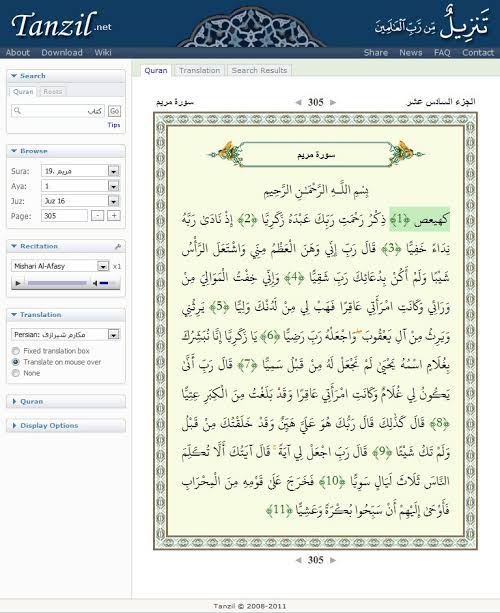 Tanzil.net
تَنزِيلٌ مِّن رَّبِّ الْعَالَمِينَ
About Download Wiki
Share News FAQ Contact
Search
Quran Roots
كتاب Go
Tips
Browse
Sura: 19. مريم
Aya: 1
Juz: Juz 16
Page: 305 - +
Recitation
Mishari Al-Afasy x1
Translation
Persian: مکارم شیرازی
Fixed translation box
Translate on mouse over
None
Quran
Display Options
Quran Translation Search Results
سورة مريم
305
الجزء السادس عشر
سورة مريم
بِسْمِ اللَّـهِ الرَّحْمَـٰنِ الرَّحِيمِ
كهيعص ﴿1﴾ ذِكْرُ رَحْمَتِ رَبِّكَ عَبْدَهُ زَكَرِيَّا ﴿2﴾ إِذْ نَادَىٰ رَبَّهُ
نِدَاءً خَفِيًّا ﴿3﴾ قَالَ رَبِّ إِنِّي وَهَنَ الْعَظْمُ مِنِّي وَاشْتَعَلَ الرَّأْسُ
شَيْبًا وَلَمْ أَكُنْ بِدُعَائِكَ رَبِّ شَقِيًّا ﴿4﴾ وَإِنِّي خِفْتُ الْمَوَالِيَ مِنْ
وَرَائِي وَكَانَتِ امْرَأَتِي عَاقِرًا فَهَبْ لِي مِنْ لَدُنْكَ وَلِيًّا ﴿5﴾ يَرِثُنِي
وَيَرِثُ مِنْ آلِ يَعْقُوبَ ۖ وَاجْعَلْهُ رَبِّ رَضِيًّا ﴿6﴾ يَا زَكَرِيَّا إِنَّا نُبَشِّرُكَ
بِغُلَامٍ اسْمُهُ يَحْيَىٰ لَمْ نَجْعَلْ لَهُ مِنْ قَبْلُ سَمِيًّا ﴿7﴾ قَالَ رَبِّ أَنَّىٰ
يَكُونُ لِي غُلَامٌ وَكَانَتِ امْرَأَتِي عَاقِرًا وَقَدْ بَلَغْتُ مِنَ الْكِبَرِ عِتِيًّا
﴿8﴾ قَالَ كَذَٰلِكَ قَالَ رَبُّكَ هُوَ عَلَيَّ هَيِّنٌ وَقَدْ خَلَقْتُكَ مِنْ قَبْلُ
وَلَمْ تَكُ شَيْئًا ﴿9﴾ قَالَ رَبِّ اجْعَلْ لِي آيَةً ۚ قَالَ آيَتُكَ أَلَّا تُكَلِّمَ
النَّاسَ ثَلَاثَ لَيَالٍ سَوِيًّا ﴿10﴾ فَخَرَجَ عَلَىٰ قَوْمِهِ مِنَ الْمِحْرَابِ
فَأَوْحَىٰ إِلَيْهِمْ أَنْ سَبِّحُوا بُكْرَةً وَعَشِيًّا ﴿11﴾
305
Tanzil © 2008-2011